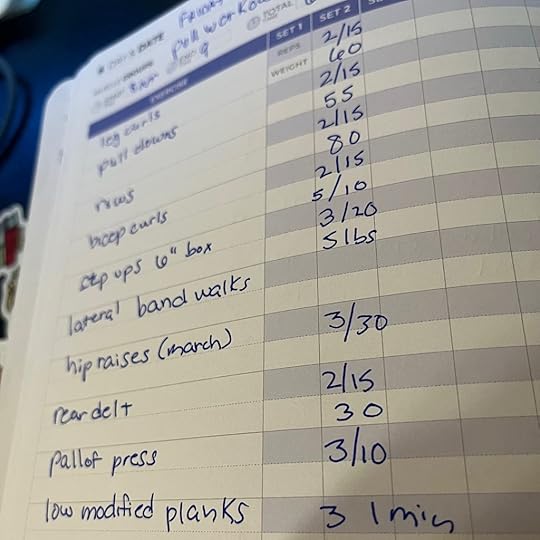 FRIDAY
Full workou
DAY & DATE
TOTAL
SET 1
SET 2
REPS
WEIGHT
EXERCISE
leg curls 2/15
60
pull downs 2/15
55
rows 2/15
80
bicep curls 2/15
5/10
step ups 6" box 3/20
5 lbs
lateral band walks
hip raises (march) 3/30
rear delt 2/15
30
pallof press 3/10
low modified planks 3 1 min